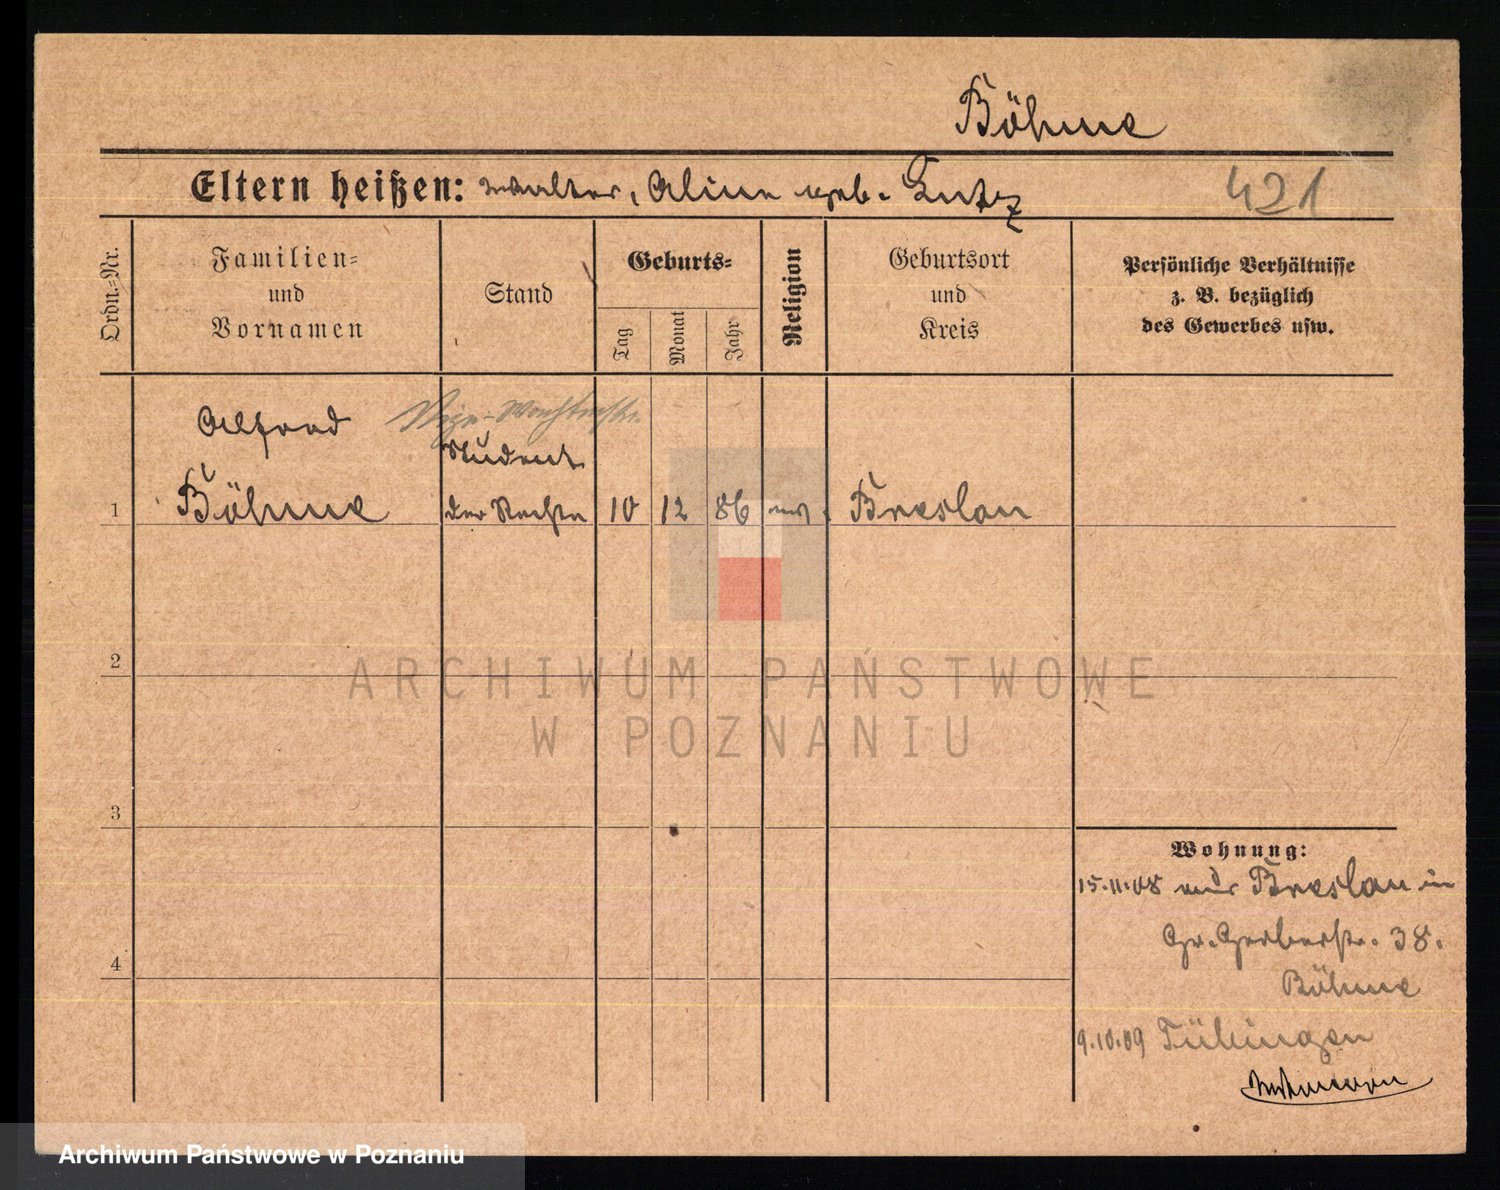 Böhme
Eltern heißen: Walter, Aline geb. Lutz
421
Ordn.-Nr.
Familien-
und
Vornamen
Stand
Geburts-
Tag
Monat
Jahr
Religion
Geburtsort
und
Kreis
Persönliche Verhältnisse
z. B. bezüglich
des Gewerbes usw.
Alfred
Vize-Wachtmstr.
Student
1 Böhme der Rechte 10 12 86 Breslau
2
3
4
Wohnung:
15.11.08 aus Breslau in
Gr. Gerberstr. 38.
Böhme
9.10.09 Tübingen
ARCHIWUM PAŃSTWOWE
W POZNANIU
Archiwum Państwowe w Poznaniu